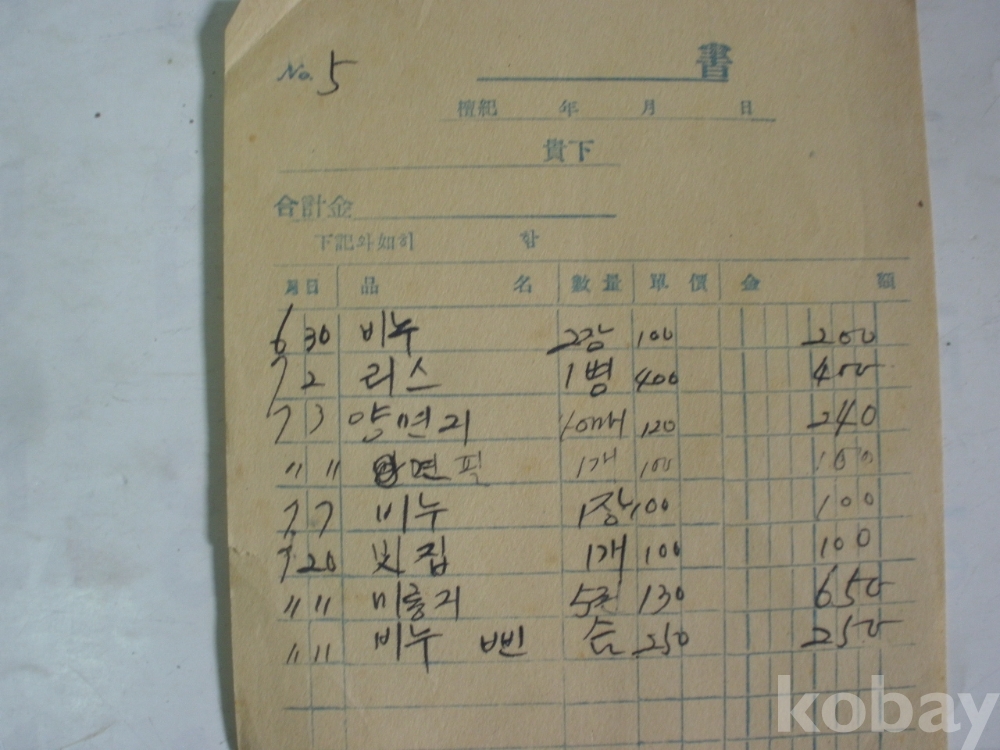 No. 5 書
檀紀 年 月 日
貴下
合計金
下記와如히 함
月日 品名 數量 單價 金額
6 30 비누 2장 100 200
7 2 리스 1병 400 400
7 3 양면지 120 240
〃 〃 면필 1개 100 100
7 7 비누 1장 100 100
7 20 집 1개 100 100
〃 〃 미롱지 5 130 650
〃 〃 비누 250 250
kobay